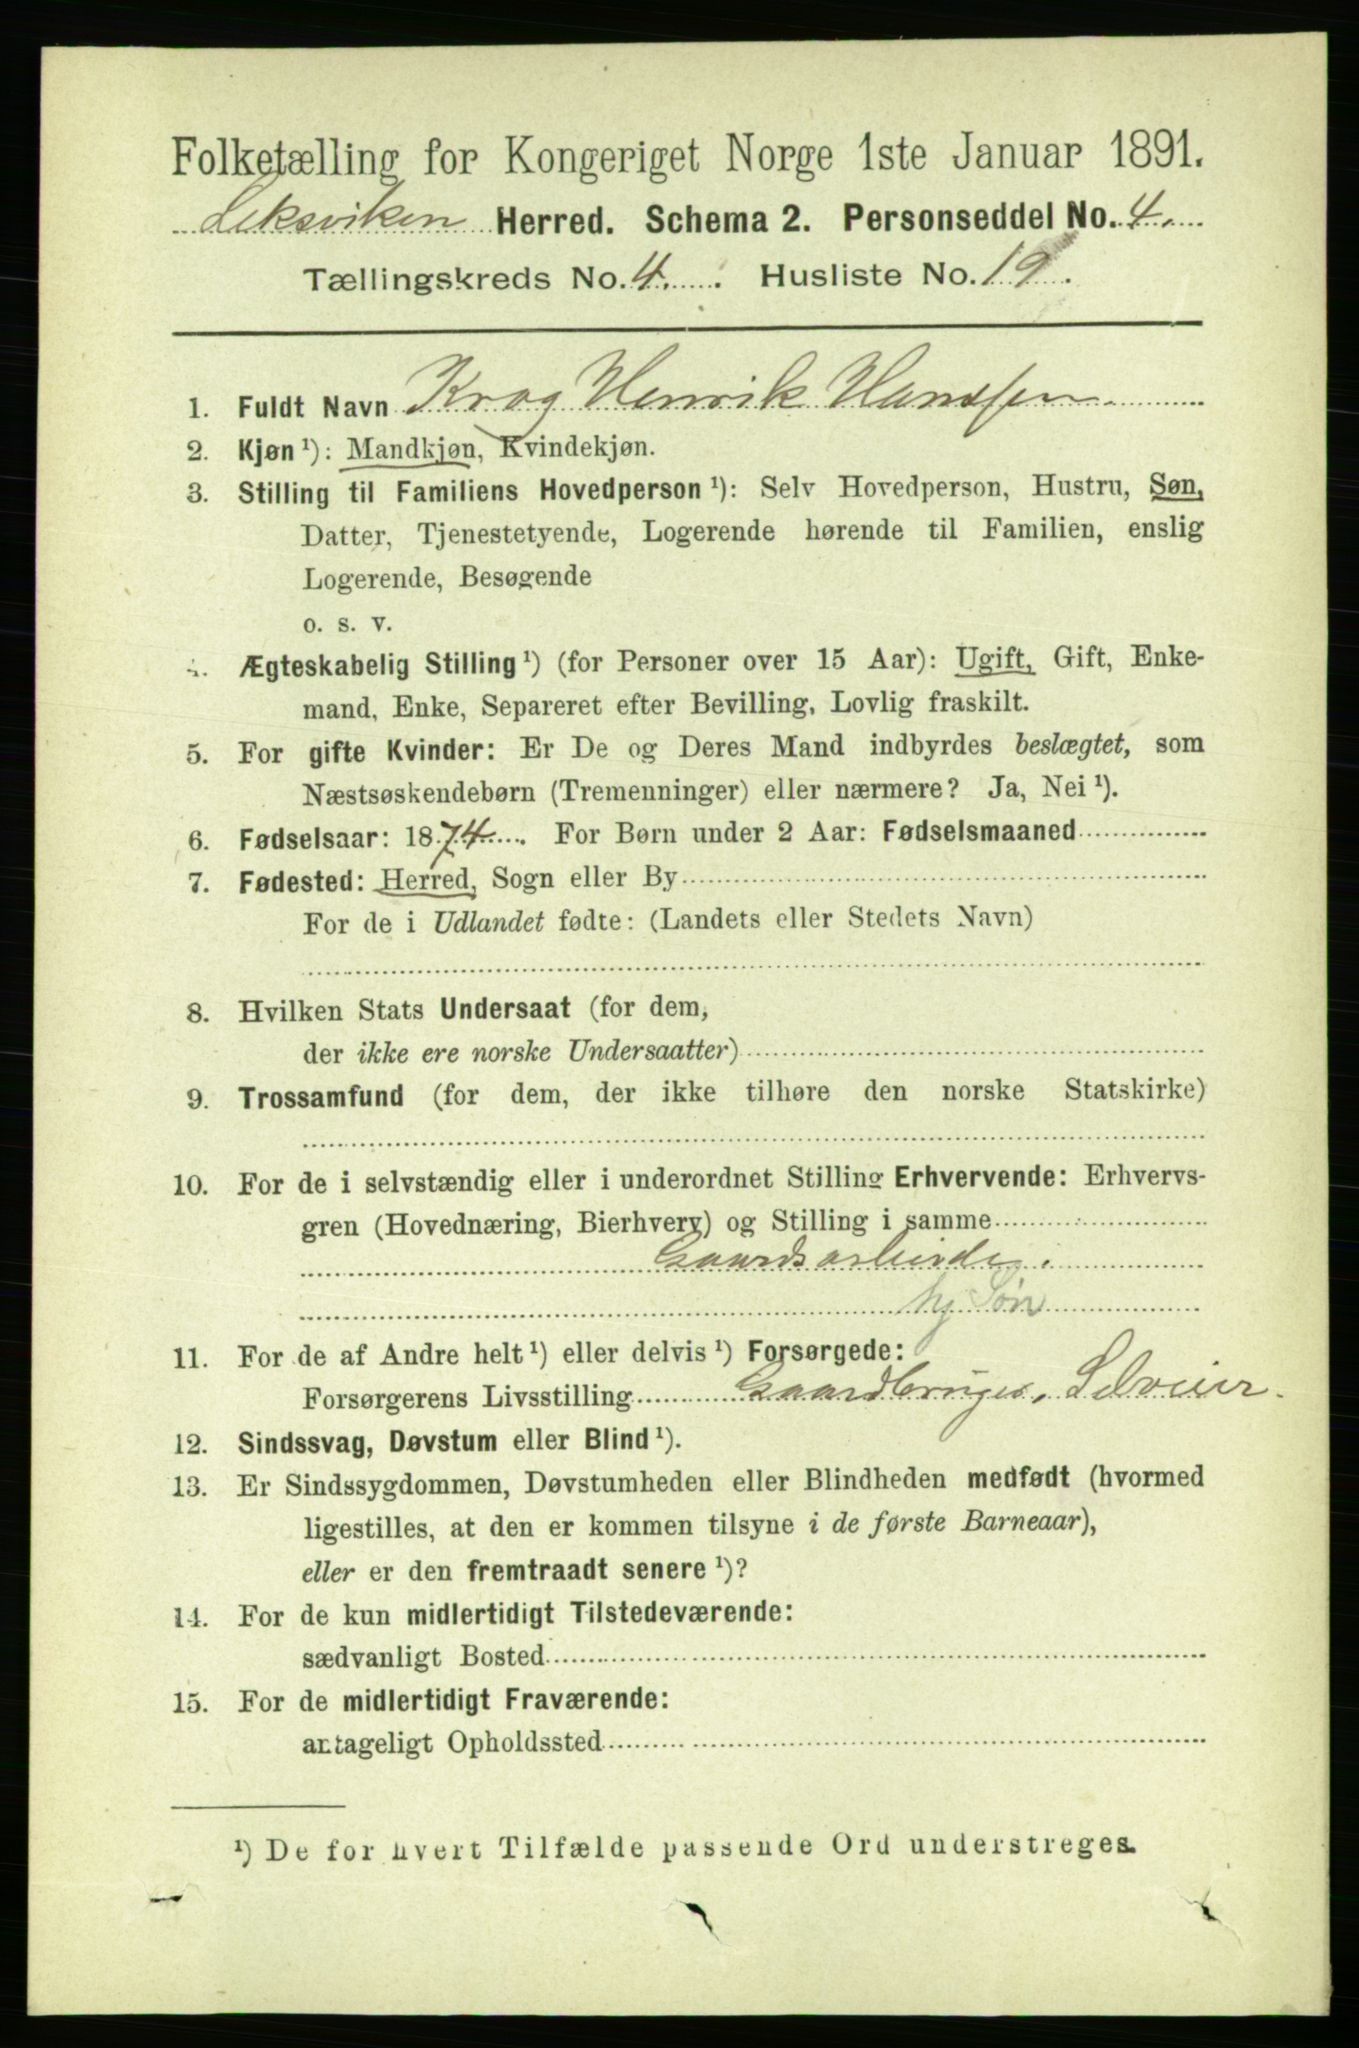 Folketælling for Kongeriget Norge 1ste Januar 1891.
Leksviken Herred. Schema 2. Personseddel No. 4.
Tællingskreds No. 4. Husliste No. 19.
1. Fuldt Navn Krog Henrik Hanssen
2. Kjøn ¹): Mandkjøn, Kvindekjøn.
3. Stilling til Familiens Hovedperson ¹): Selv Hovedperson, Hustru, Søn,
Datter, Tjenestetyende, Logerende hørende til Familien, enslig
Logerende, Besøgende
o. s. v.
4. Ægteskabelig Stilling ¹) (for Personer over 15 Aar): Ugift, Gift, Enke-
mand, Enke, Separeret efter Bevilling, Lovlig fraskilt.
5. For gifte Kvinder: Er De og Deres Mand indbyrdes beslægtet, som
Næstsøskendebørn (Tremenninger) eller nærmere? Ja, Nei ¹).
6. Fødselsaar: 1874. For Børn under 2 Aar: Fødselsmaaned
7. Fødested: Herred, Sogn eller By
For de i Udlandet fødte: (Landets eller Stedets Navn)
8. Hvilken Stats Undersaat (for dem,
der ikke ere norske Undersaatter)
9. Trossamfund (for dem, der ikke tilhøre den norske Statskirke)
10. For de i selvstændig eller i underordnet Stilling Erhvervende: Erhvervs-
gren (Hovednæring, Bierhverv) og Stilling i samme
Gaardsarbeide.
hj Søn
11. For de af Andre helt ¹) eller delvis ¹) Forsørgede:
Forsørgerens Livsstilling Gaardbruger, Selveier.
12. Sindssvag, Døvstum eller Blind ¹).
13. Er Sindssygdommen, Døvstumheden eller Blindheden medfødt (hvormed
ligestilles, at den er kommen tilsyne i de første Barneaar),
eller er den fremtraadt senere ¹)?
14. For de kun midlertidigt Tilstedeværende:
sædvanligt Bosted
15. For de midlertidigt Fraværende:
antageligt Opholdssted
¹) De for hvert Tilfælde passende Ord understreges.